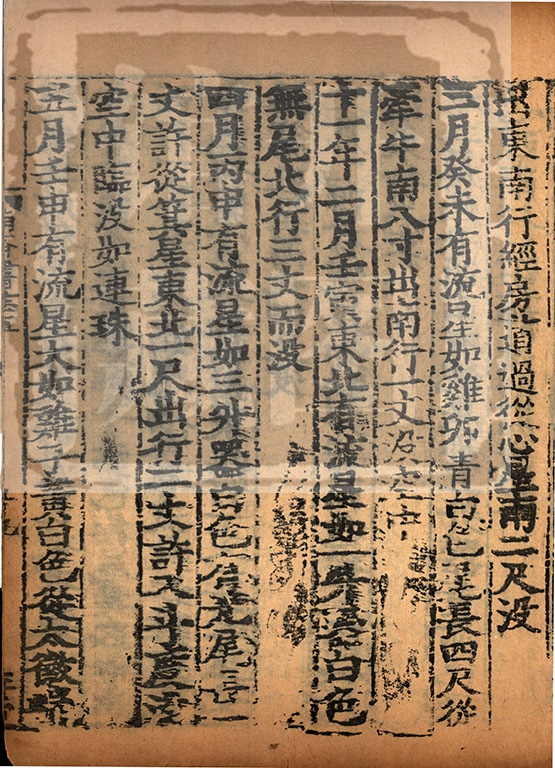 東南行經房道過從心星南二尺没
三月癸未有流星如雞卵青白色尾長四尺從
牽牛南八寸出南行一丈没空中
十一年二月壬寅東北有流星如一升器白色
無尾北行三丈而没
四月丙申有流星如三升器白色有光尾長一
丈許從箕星東北一尺出行二丈許及斗度
空中臨没如連珠
五月壬申有流星大如雞子黄白色從太微